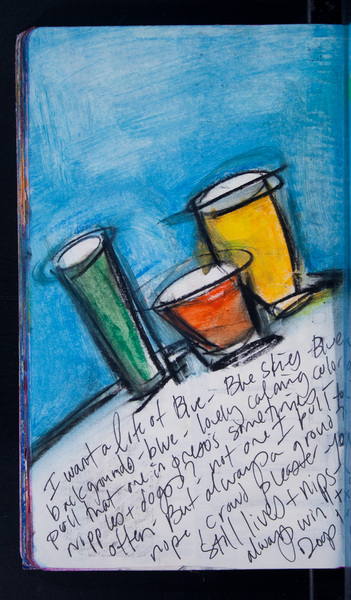 I want a life of Blue - Blue skies - Blue
backgrounds - blue - lovely calming color
Pull that one in process something
nipples + dogos? - not one I pull to
often. But always a crowd
nope - crowd pleaser - you
Still lives + nips -
always win
Doop!